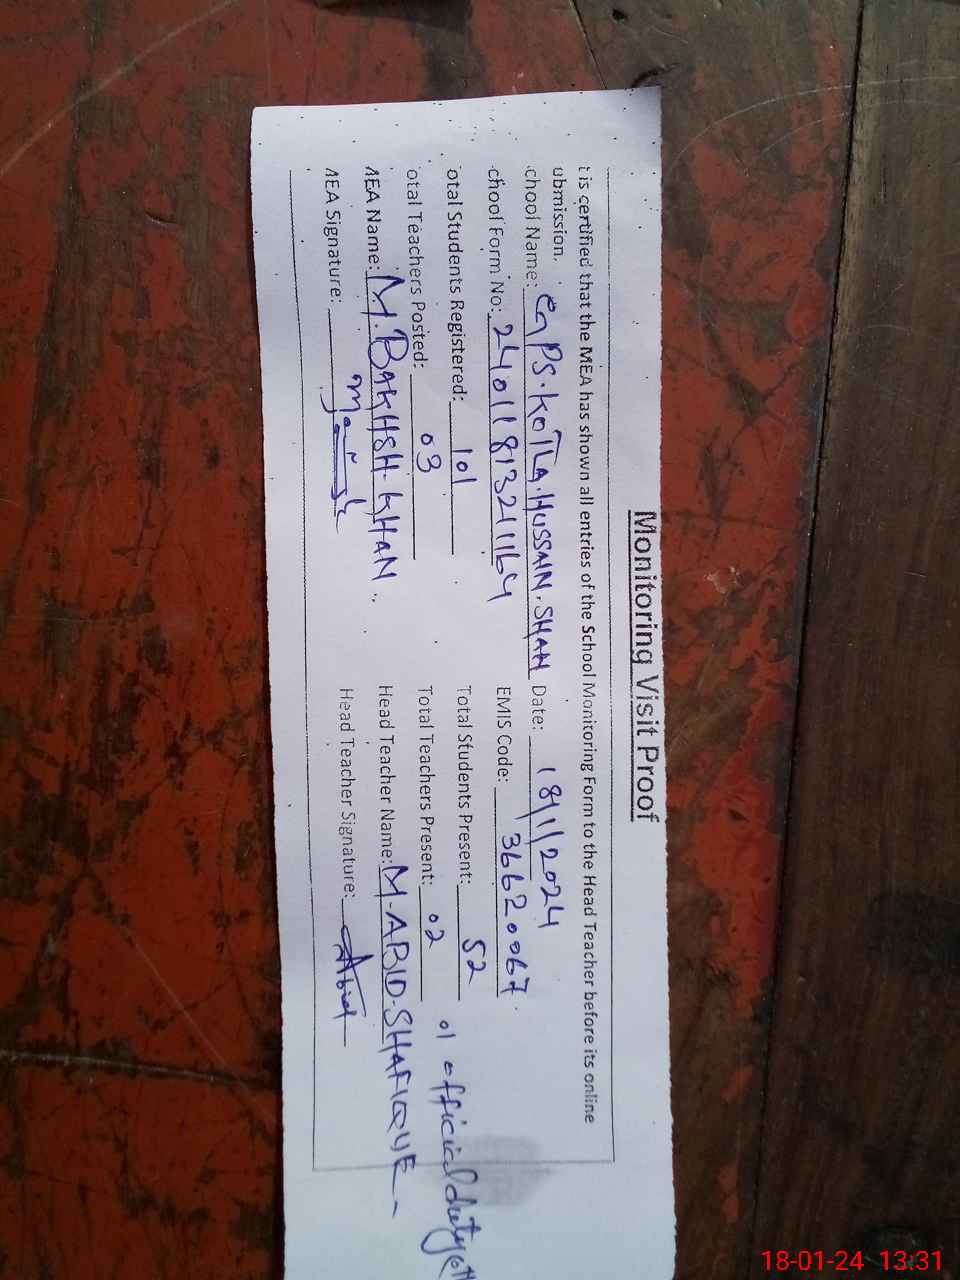 Monitoring Visit Proof
t is certified that the MEA has shown all entries of the School Monitoring Form to the Head Teacher before its online
ubmission.
chool Name: GPS.KOTLA.HUSSAIN.SHAH Date: 18/1/2024
chool Form No: 2401181321164 EMIS Code: 36620067
otal Students Registered: 101 Total Students Present: 52
otal Teachers Posted: 03 Total Teachers Present: 02 01 official duty
MEA Name: M.BAKHSH.KHAN. Head Teacher Name: M.ABID.SHAFIQUE-
MEA Signature: Head Teacher Signature: Abid
18-01-24 13:31